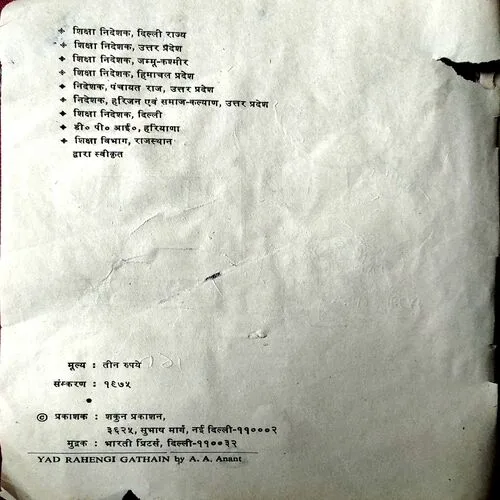 ✦ शिक्षा निदेशक, दिल्ली राज्य
✦ शिक्षा निदेशक, उत्तर प्रदेश
✦ शिक्षा निदेशक, जम्मू-कश्मीर
✦ शिक्षा निदेशक, हिमाचल प्रदेश
✦ निदेशक, पंचायत राज, उत्तर प्रदेश
✦ निदेशक, हरिजन एवं समाज-कल्याण, उत्तर प्रदेश
✦ शिक्षा निदेशक, दिल्ली
✦ डी० पी० आई०, हरियाणा
✦ शिक्षा विभाग, राजस्थान
द्वारा स्वीकृत
मूल्य : तीन रुपये
संस्करण : १९७५
© प्रकाशक : शकुन प्रकाशन,
३६२५, सुभाष मार्ग, नई दिल्ली-११०००२
मुद्रक : भारती प्रिंटर्स, दिल्ली-११००३२
YAD RAHENGI GATHAIN by A. A. Anant